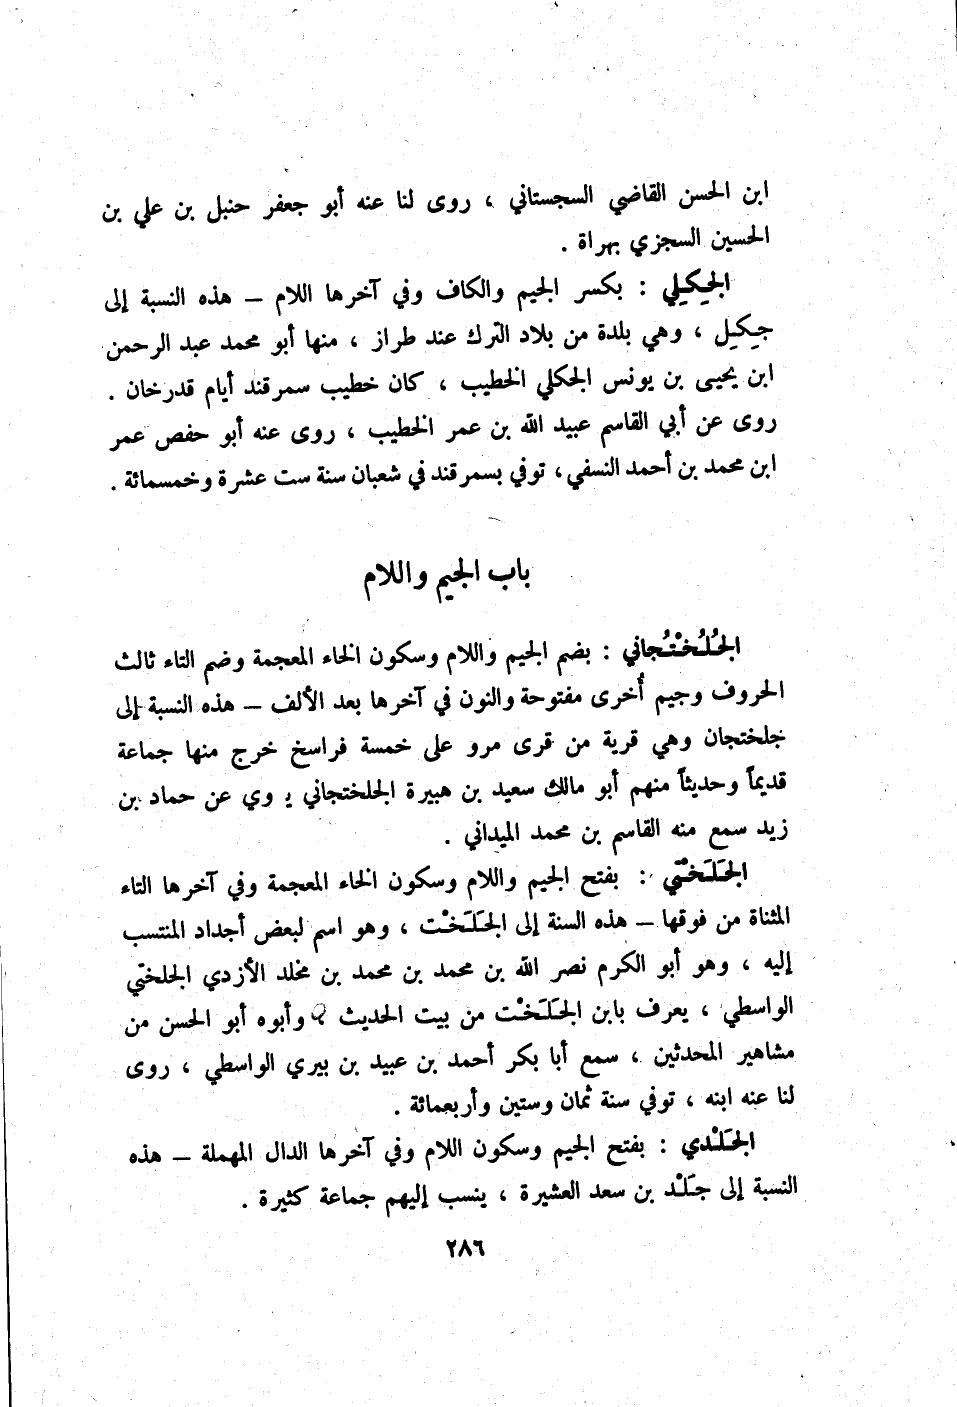 ابن الحسن القاضي السجستاني ، روى لنا عنه أبو جعفر حنبل بن علي بن
الحسين السجزي بهراة .
الجِكِلي : بكسر الجيم والكاف وفي آخرها اللام – هذه النسبة إلى
جِكِل ، وهي بلدة من بلاد الترك عند طراز ، منها أبو محمد عبد الرحمن
ابن يحيى بن يونس الجكلي الخطيب ، كان خطيب سمرقند أيام قدرخان .
روى عن أبي القاسم عبيد الله بن عمر الخطيب ، روى عنه أبو حفص عمر
ابن محمد بن أحمد النسفي ، توفي بسمرقند في شعبان سنة ست عشرة وخمسمائة .
باب الجيم واللام
الجُلُخْتُجاني : بضم الجيم واللام وسكون الخاء المعجمة وضم التاء ثالث
الحروف وجيم أُخرى مفتوحة والنون في آخرها بعد الألف – هذه النسبة إلى
جلختجان وهي قرية من قرى مرو على خمسة فراسخ خرج منها جماعة
قديماً وحديثاً منهم أبو مالك سعيد بن هبيرة الجلختجاني يروي عن حماد بن
زيد سمع منه القاسم بن محمد الميداني .
الجَلَخْتي : بفتح الجيم واللام وسكون الخاء المعجمة وفي آخرها التاء
المثناة من فوقها – هذه السنة إلى الجَلَخْت ، وهو اسم لبعض أجداد المنتسب
إليه ، وهو أبو الكرم نصر الله بن محمد بن محمد بن مخلد الأزدي الجلختي
الواسطي ، يعرف بابن الجَلَخْت من بيت الحديث ؟ وأبوه أبو الحسن من
مشاهير المحدثين ، سمع أبا بكر أحمد بن عبيد بن بيري الواسطي ، روى
لنا عنه ابنه ، توفي سنة ثمان وستين وأربعمائة .
الجَلْدي : بفتح الجيم وسكون اللام وفي آخرها الدال المهملة – هذه
النسبة إلى جَلْد بن سعد العشيرة ، ينسب إليهم جماعة كثيرة .
٢٨٦